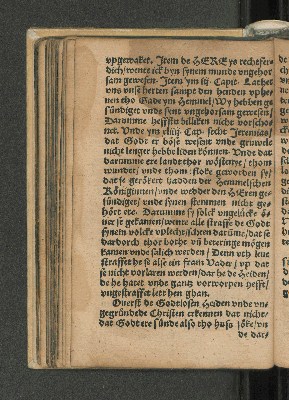 vpgewaket. Item de HERE ys rechtfer-
dich/ wente ick byn synem munde vngehor
sam gewesen. Item ym iij. Capit. Lathet
vns vnse herten sampt den henden vphe-
uen tho Gade ym Hemmel/ Wy hebben ge
sündiget vnde synt vngehorsam gewesen/
Darumme heffstu billiken nicht vorschoo
net. Vnde ym xliiij. Cap. secht Jeremias/
dat Godt er böse wesent vnde gruwele
nicht lenger hebbe liden können. Vnde dat
darumme ere landt thor wöstenye/ thom
wunder/ vnde thom floke geworden sy/
dat se gerökert hadden der Hemmelschen
Königinnen/ vnde wedder den HEren ge-
sündiget/ vnde synen stemmen nicht ge-
hört etc. Darumme sy solck vngelücke ö-
uer se gekamen/ wente alle straffe de Godt
synem volcke vplecht/ scheen darüme/ dat se
dardorch thor bothe vñ beteringe mögen
kamen vnde salich werden/ Denn vth leue
straffet he se alse ein fram Vader/ vp dat
se nicht vorlaren werden/ dar he de Heiden/
de he hatet vnde gantz vorworpen hefft/
vngestraffet leth hen ghan.
Ouerst de Godtlosen Heiden vnde vn-
gegründede Christen erkennen dat nicht-
dat Godt ere sünde also tho huß söke/ vn
de dar-